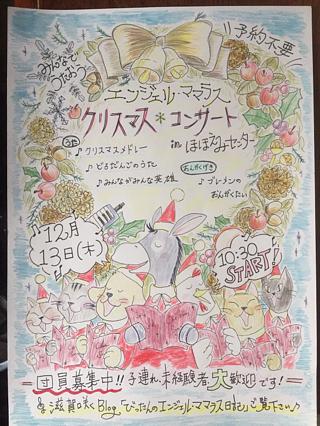 みんなで
うたおう
予約不要
エンジェル・ママラス
クリスマス*コンサート
in ほほえみセンター
うた
♪クリスマスメドレー
♪どろだんごのうた
♪みんながみんな英雄
おんがくげき
♪ブレーメンの
おんがくたい
12月
13日(木)
10:30
START!
団員募集中!!子連れ、未経験者、大歓迎です!
滋賀咲くBlog「ぴったんのエンジェル・ママラス日記」ご覧下さい♪